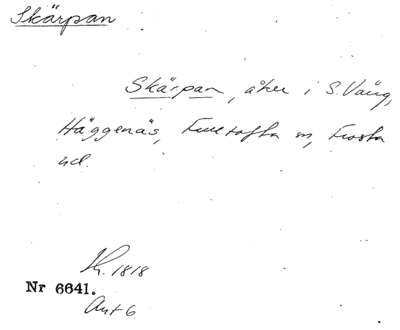 Skärpan
Skärpan, åker i S. Vång,
Häggenäs, Fulltofta sn, Frosta
hd.
Kr. 1818
Nr 6641.
Akt 6